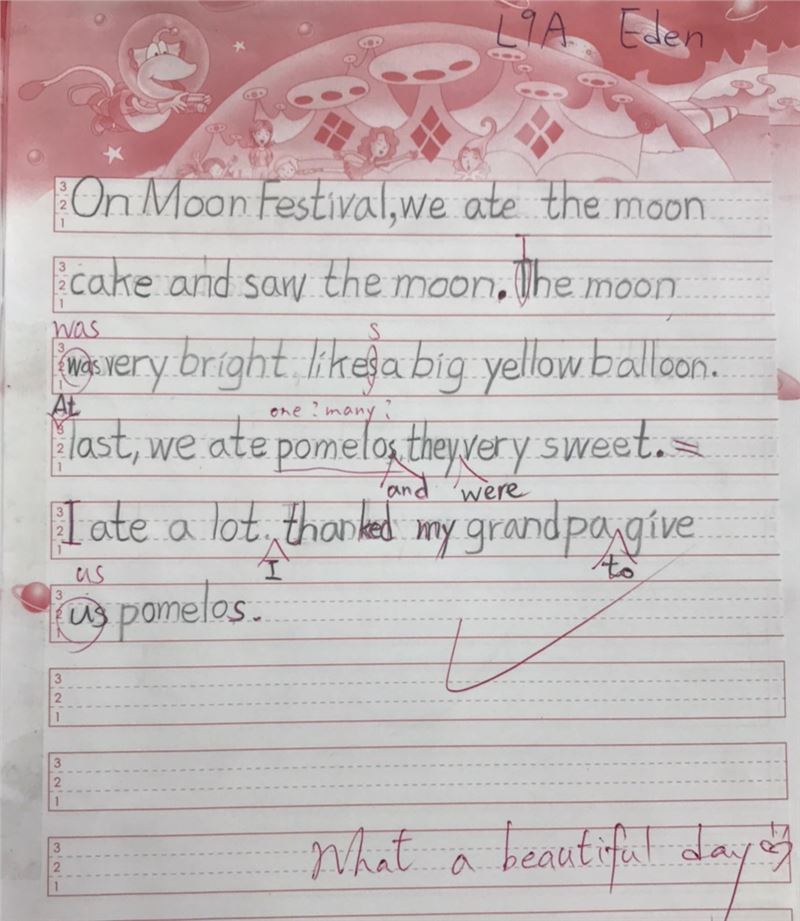 L9A Eden
On Moon Festival, we ate the moon
cake and saw the moon. The moon
was
was very bright likes a big yellow balloon.
s
At
one? many?
last, we ate pomelos, they very sweet.
and were
I ate a lot. thanked my grandpa give
I to
us
us pomelos.
What a beautiful day